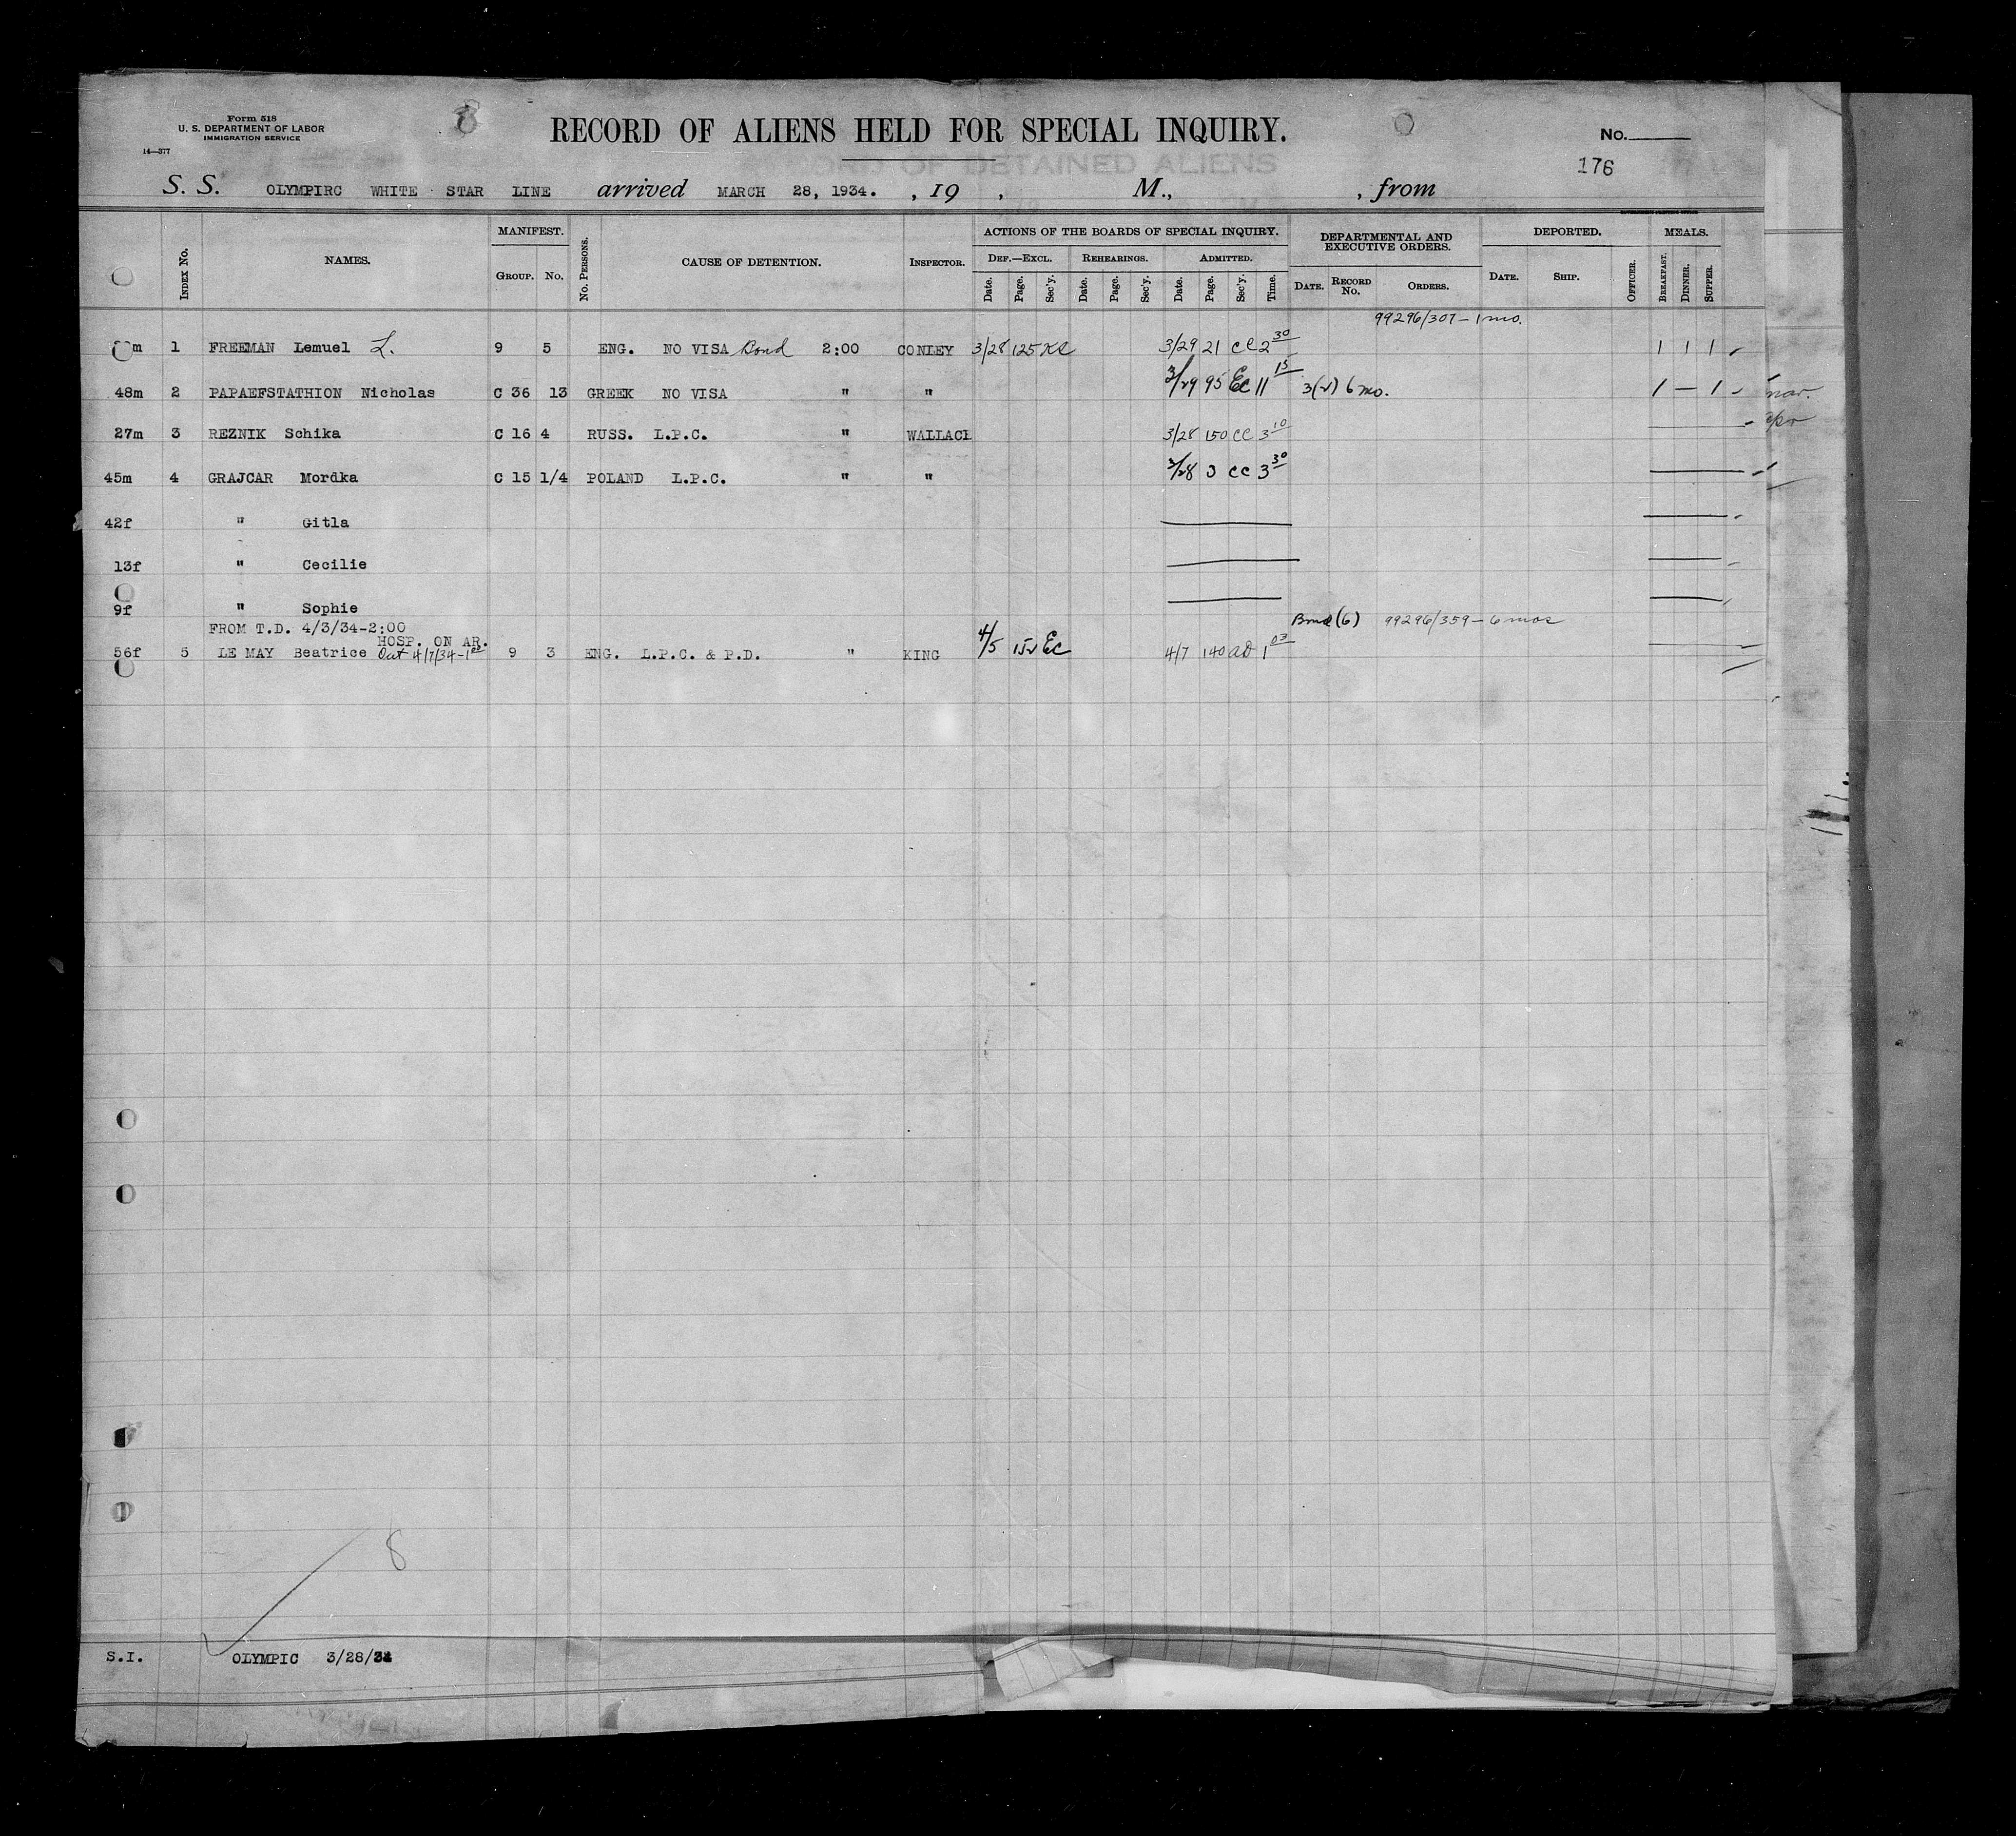 Form 518
U. S. DEPARTMENT OF LABOR
IMMIGRATION SERVICE
14—377
8
RECORD OF ALIENS HELD FOR SPECIAL INQUIRY.
No.
176
OF DETAINED ALIENS
S. S. OLYMPIRC WHITE STAR LINE arrived MARCH 28, 1934. , 19 , M., , from
Index No. NAMES. MANIFEST. Group. No. No. Persons. CAUSE OF DETENTION. Inspector. ACTIONS OF THE BOARDS OF SPECIAL INQUIRY. Def.—Excl. Date. Page. Sec'y. Rehearings. Date. Page. Sec'y. Admitted. Date. Page. Sec'y. Time. DEPARTMENTAL AND EXECUTIVE ORDERS. Date. Record No. Orders. DEPORTED. Date. Ship. Officer. MEALS. Breakfast. Dinner. Supper.
99296/307 - 1 mo.
m 1 FREEMAN Lemuel L. 9 5 ENG. NO VISA Bond 2:00 CONLEY 3/28 125 KC 3/29 21 CC 2 30 1 1 1
48m 2 PAPAEFSTATHION Nicholas C 36 13 GREEK NO VISA " " 3/29 95 EC 11 15 3(2) 6 mo. 1 — 1
27m 3 REZNIK Schika C 16 4 RUSS. L.P.C. " WALLACE 3/28 150 CC 3 10
45m 4 GRAJCAR Mordka C 15 1/4 POLAND L.P.C. " " 3/28 3 CC 3 30
42f " Gitla
13f " Cecilie
9f " Sophie
FROM T.D. 4/3/34-2:00
HOSP. ON AR.
Bond (6) 99296/359 - 6 mos
56f 5 LE MAY Beatrice Out 4/7/34-1 05 9 3 ENG. L.P.C. & P.D. " KING 4/5 152 EC 4/7 140 AD 1 03
8
S.I. OLYMPIC 3/28/34